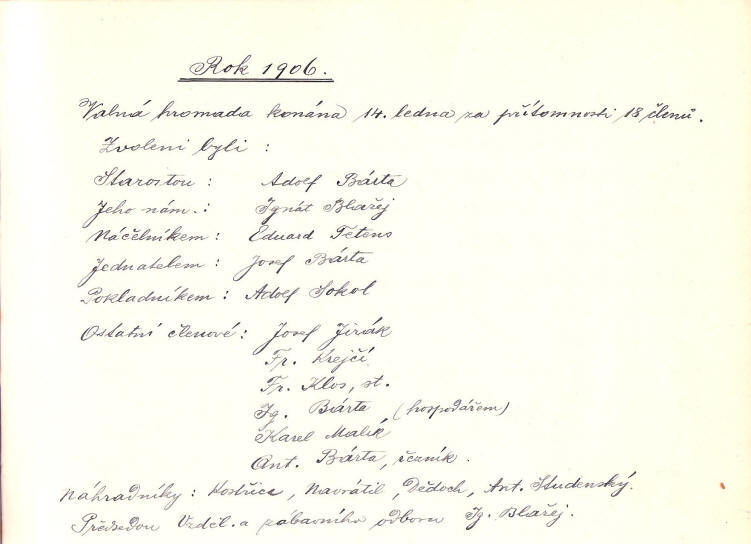 Rok 1906.
Valná hromada konána 14. ledna za přítomnosti 18 členů.
Zvoleni byli :
Starostou : Adolf Bárta
Jeho nám. : Ignát Blařej
Náčelníkem : Eduard Tetens
Jednatelem : Josef Bárta
Pokladníkem : Adolf Sokol
Ostatní členové : Josef Jirák
Fr. Krejčí
Fr. Klos, st.
Ig. Bárta (hospodářem)
Karel Malík
Ant. Bárta, řezník.
Náhradníky : Kostřica, Navrátil, Dědoch, Ant. Studenský.
Předsedou Vzděl. a zábavního odboru Ig. Blařej.